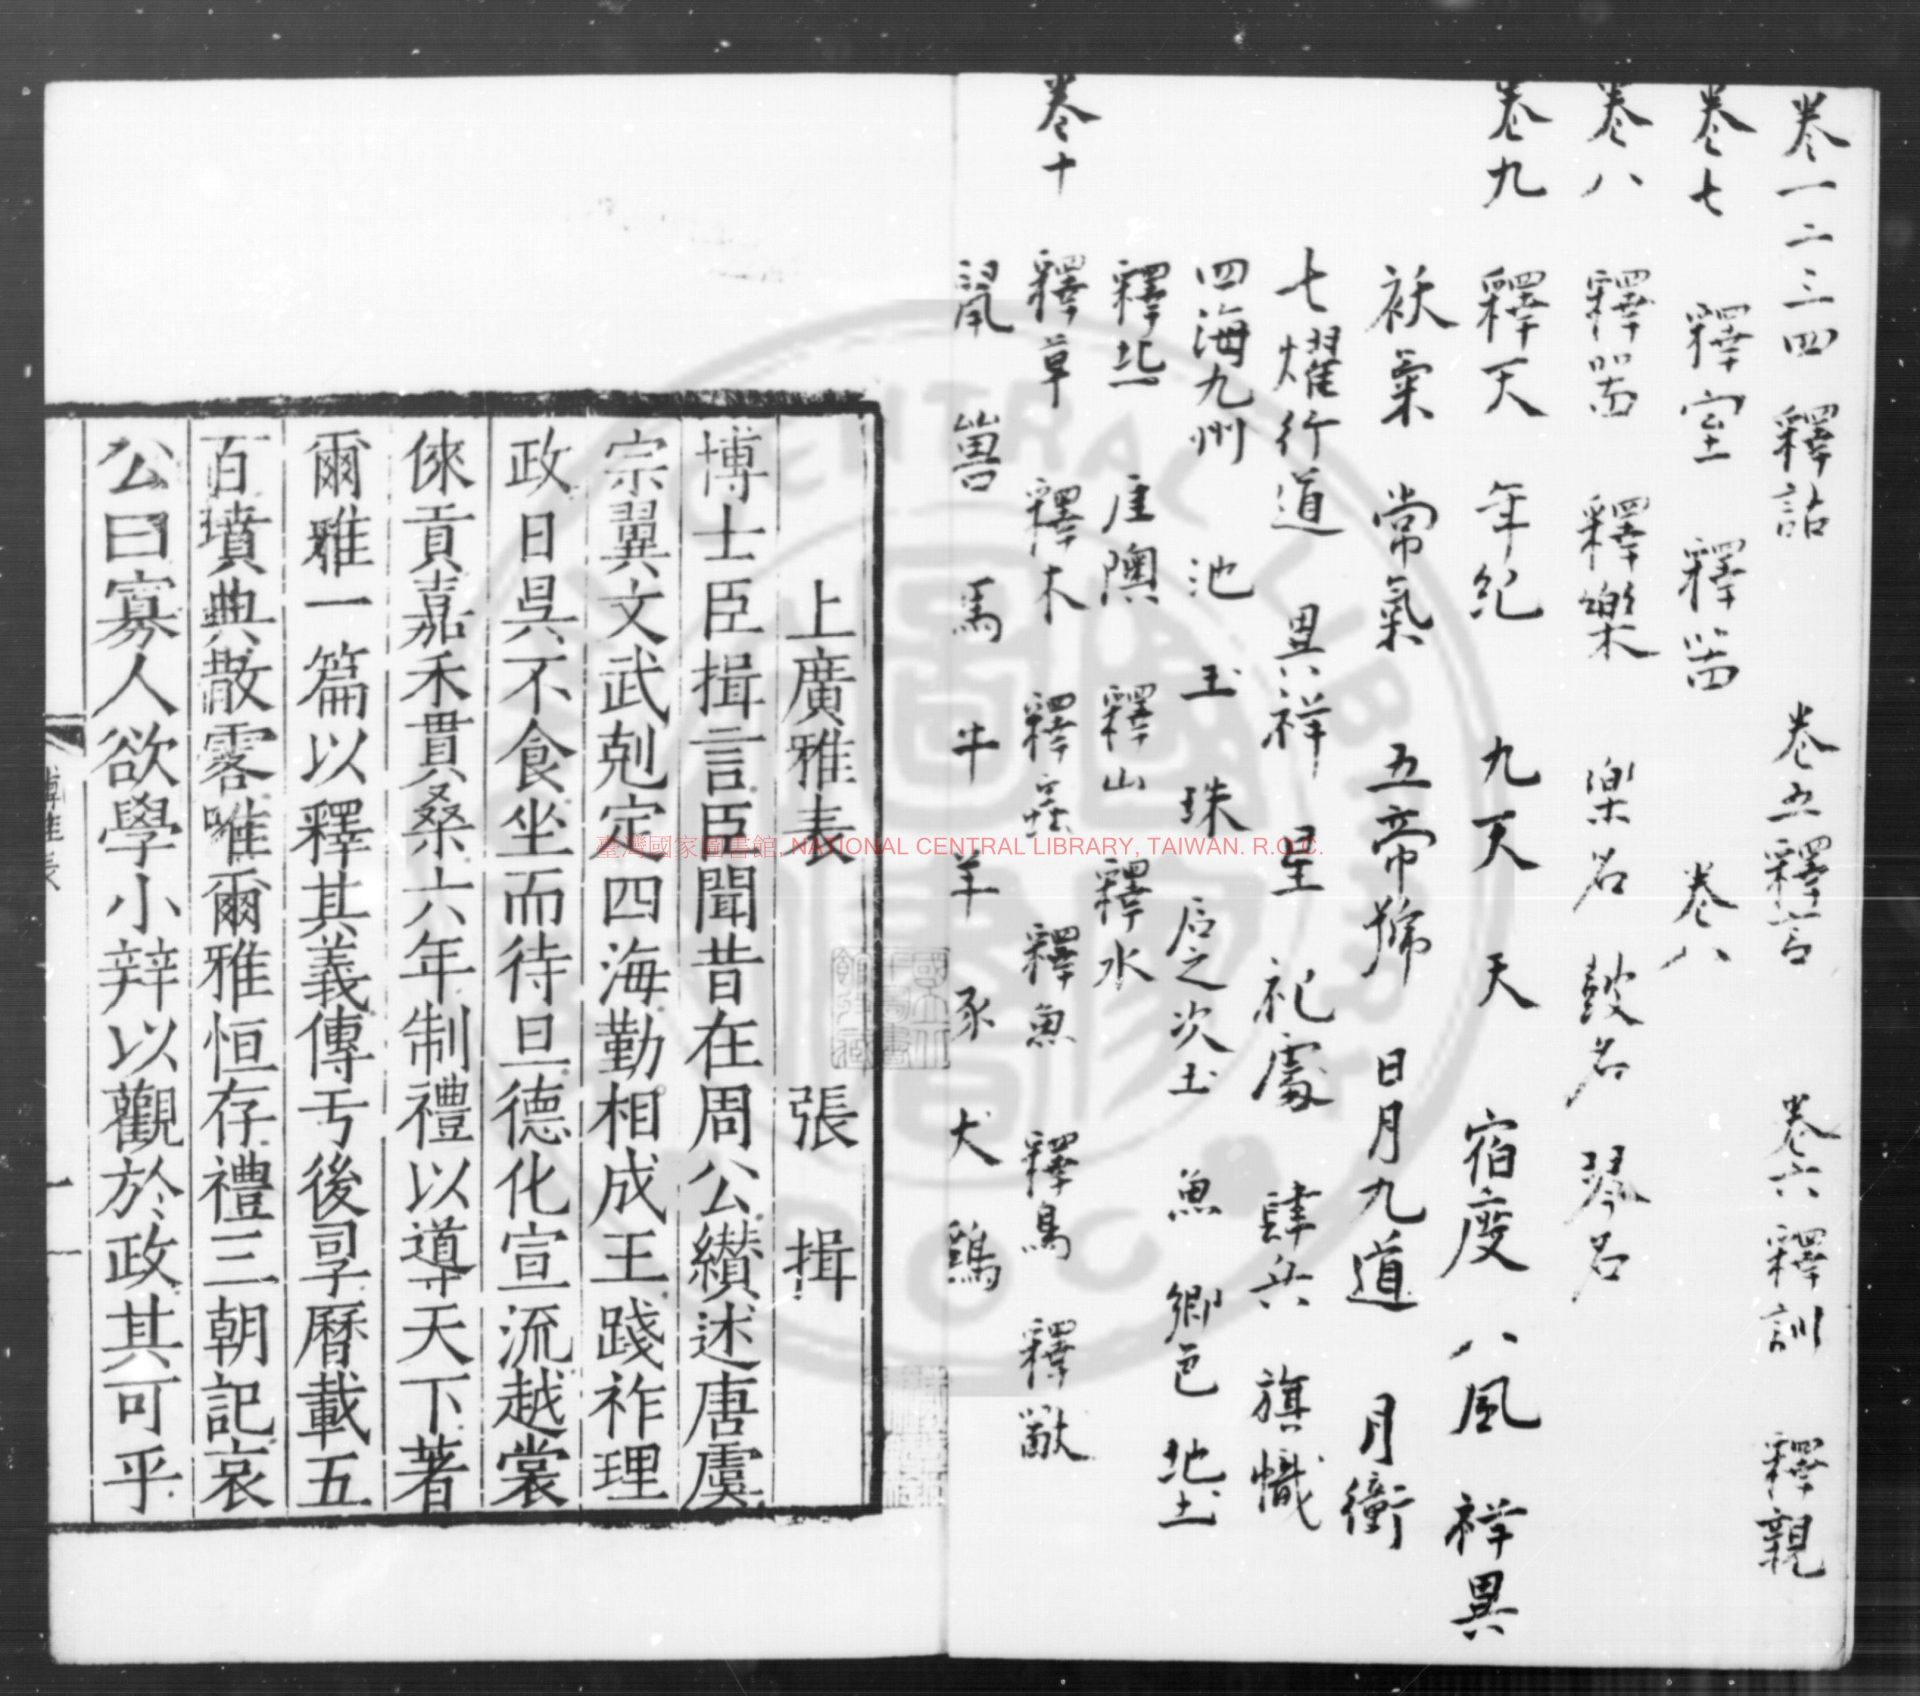 卷一二三四 釋詁 卷五釋言 卷六釋訓 釋親
卷七 釋室 釋器 卷八
卷八 釋器 釋樂 樂名 鼓名 琴名
卷九 釋天 年紀 九天 天 宿度 八風 祥異
祅氣 常氣 五帝號 日月九道 月衝
七燿行道 異祥 星 祀處 肆兵 旗幟
四海九州 池 玉 珠 石之次玉 魚 鄉邑 地土
釋丘 厓隩 釋山 釋水
卷十 釋草 釋木 釋蟲 釋魚 釋鳥 釋獸
鼠 嘼 馬 牛 羊 豕 犬 鷄
上廣雅表 張 揖
博士臣揖言臣聞昔在周公纘述唐虞
宗翼文武剋定四海勤相成王踐祚理
政日昃不食坐而待旦德化宣流越裳
倈貢嘉禾貫桑六年制禮以導天下著
爾雅一篇以釋其義傳亏後孠曆載五
百墳典散零唯爾雅恒存禮三朝記哀
公曰寡人欲學小辯以觀於政其可乎
博雅表
一
臺灣國家圖書館, NATIONAL CENTRAL LIBRARY, TAIWAN. R.O.C.